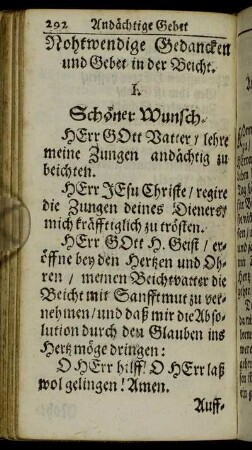 292 Andächtige Gebet
Nohtwendige Gedancken
und Gebet in der Beicht.
I.
Schöner Wunsch.
HErr GOtt Vatter / lehre
meine Zungen andächtig zu
beichten.
HErr JEsu Christe / regire
die Zungen deines Dieners /
mich kräfftiglich zu trösten.
HErr GOtt H. Geist / er-
öffne bey den Hertzen und Oh-
ren / meinen Beichtvatter die
Beicht mit Sanfftmut zu ver-
nehmen / und daß mir die Abso-
lution durch den Glauben ins
Hertz möge dringen:
O HErr hilff! O HErr laß
wol gelingen! Amen.
Auff-